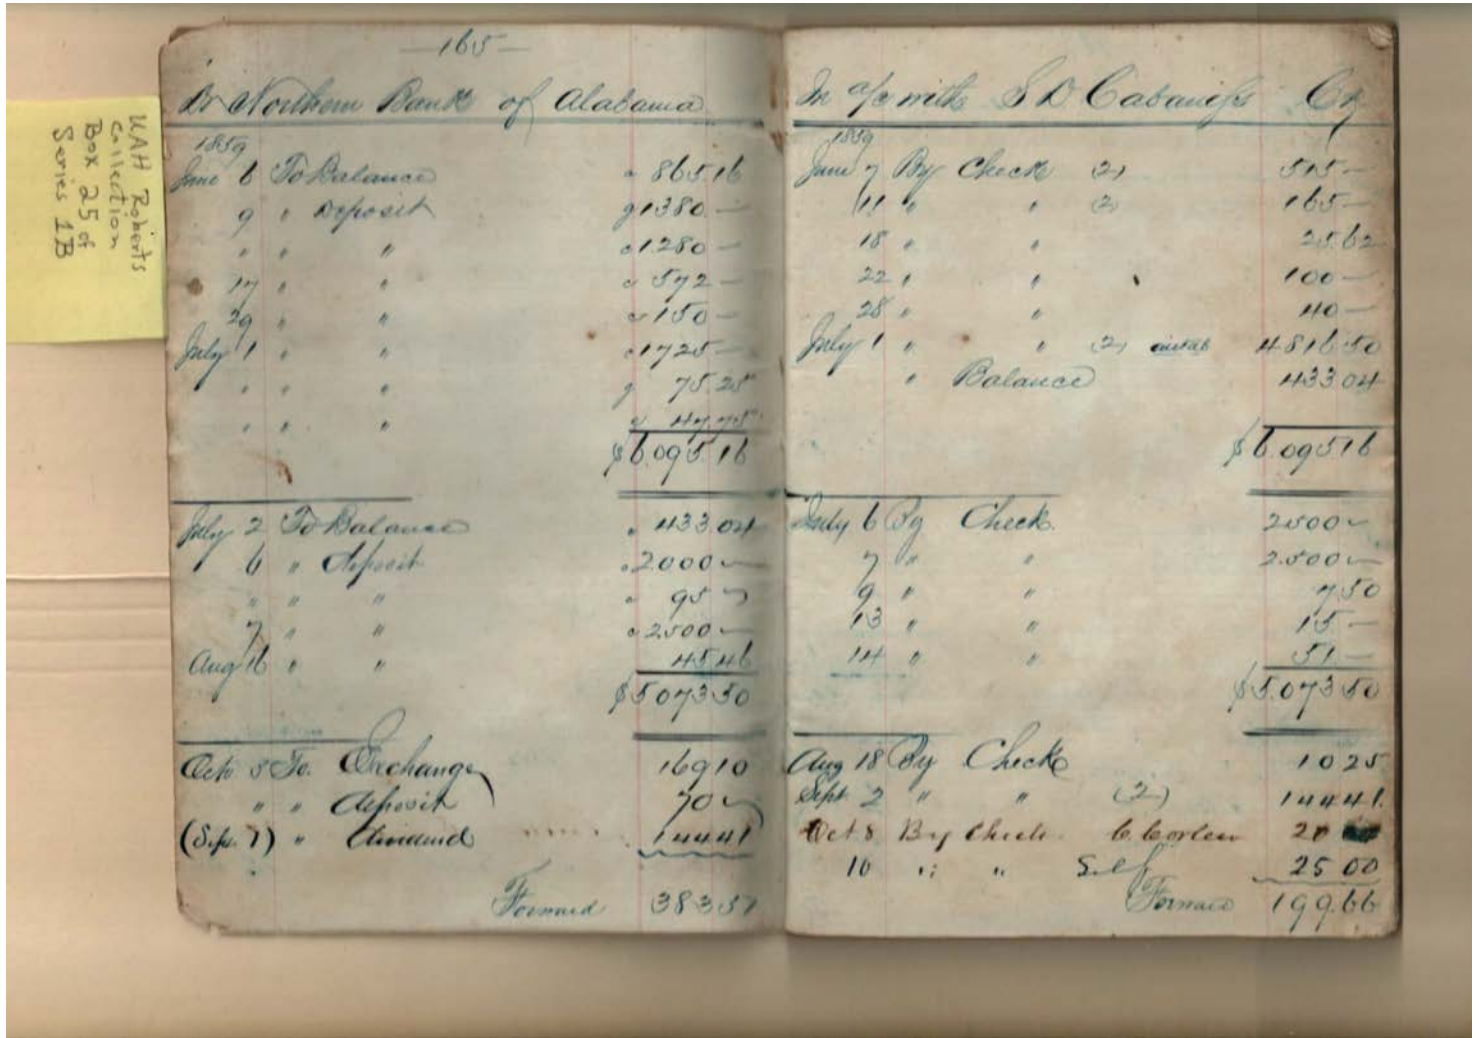 UAH Roberts
Collection
Box 25 of
Series 1B
—165—
Dr Northern Bank of Alabama
1859
June 6 To Balance " 865 16
9 " Deposit g 1380 —
" " " " 1.280 —
17 " " " 572 —
29 " " " 150 —
July 1 " " " 1725 —
" " " g 75 25
" " " " 47.75
$6.095 16
July 2 To Balance " 433 04
6 " deposit " 2000 —
" " " " 95 —
7 " " " 2.500 —
Aug 16 " " 45 46
$5073 50
Octo 8 To. Exchange 169 10
" " deposit 70 —
(Sept. 7) " dividend 144 41
Forward 383 51
In a/c with S D Cabaniss Cr
1859
June 7 By Check (2) 515 —
11 " " (2) 165 —
18 " " 25.62
22 " " 100 —
28 " " 40 —
July 1 " " (2) 4816 50
" Balance 433 04
$6.095 16
July 6 By Check 2500 —
7 " " 2.500 —
9 " " 7.50
13 " " 15 —
14 " " 51 —
$5.073 50
Aug 18 By Check 10 25
Sept 2 " " (2) 144 41
Oct 8 By Check C. Corlew 20
10 " " Self 25 00
Forward 199.66